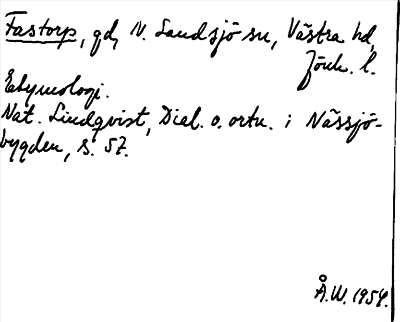 Fastorp, gd, N. Sandsjö sn, Västra hd,
Jönk. l.
Etymologi.
Nat. Lindqvist, Dial. o. ortn. i Nässjö-
bygden, s. 57.
Å.W. 1954.